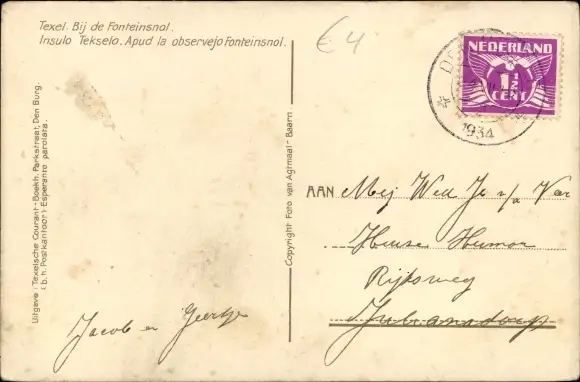 Texel. Bij de Fonteinsnol.
Insulo Tekselo. Apud la observejo Fonteinsnol.
€4
NEDERLAND
1½
CENT
1934
Uitgave: Texelsche Courant-Boekh. Parkstraat, Den Burg.
i.b.h. Postkantoor: Esperanto parolata.
Copyright Foto van Agtmaal-Baarn.
AAN Mej Wed
Huize Humor
Rijksweg
Julianadorp
Jacob en Geertje